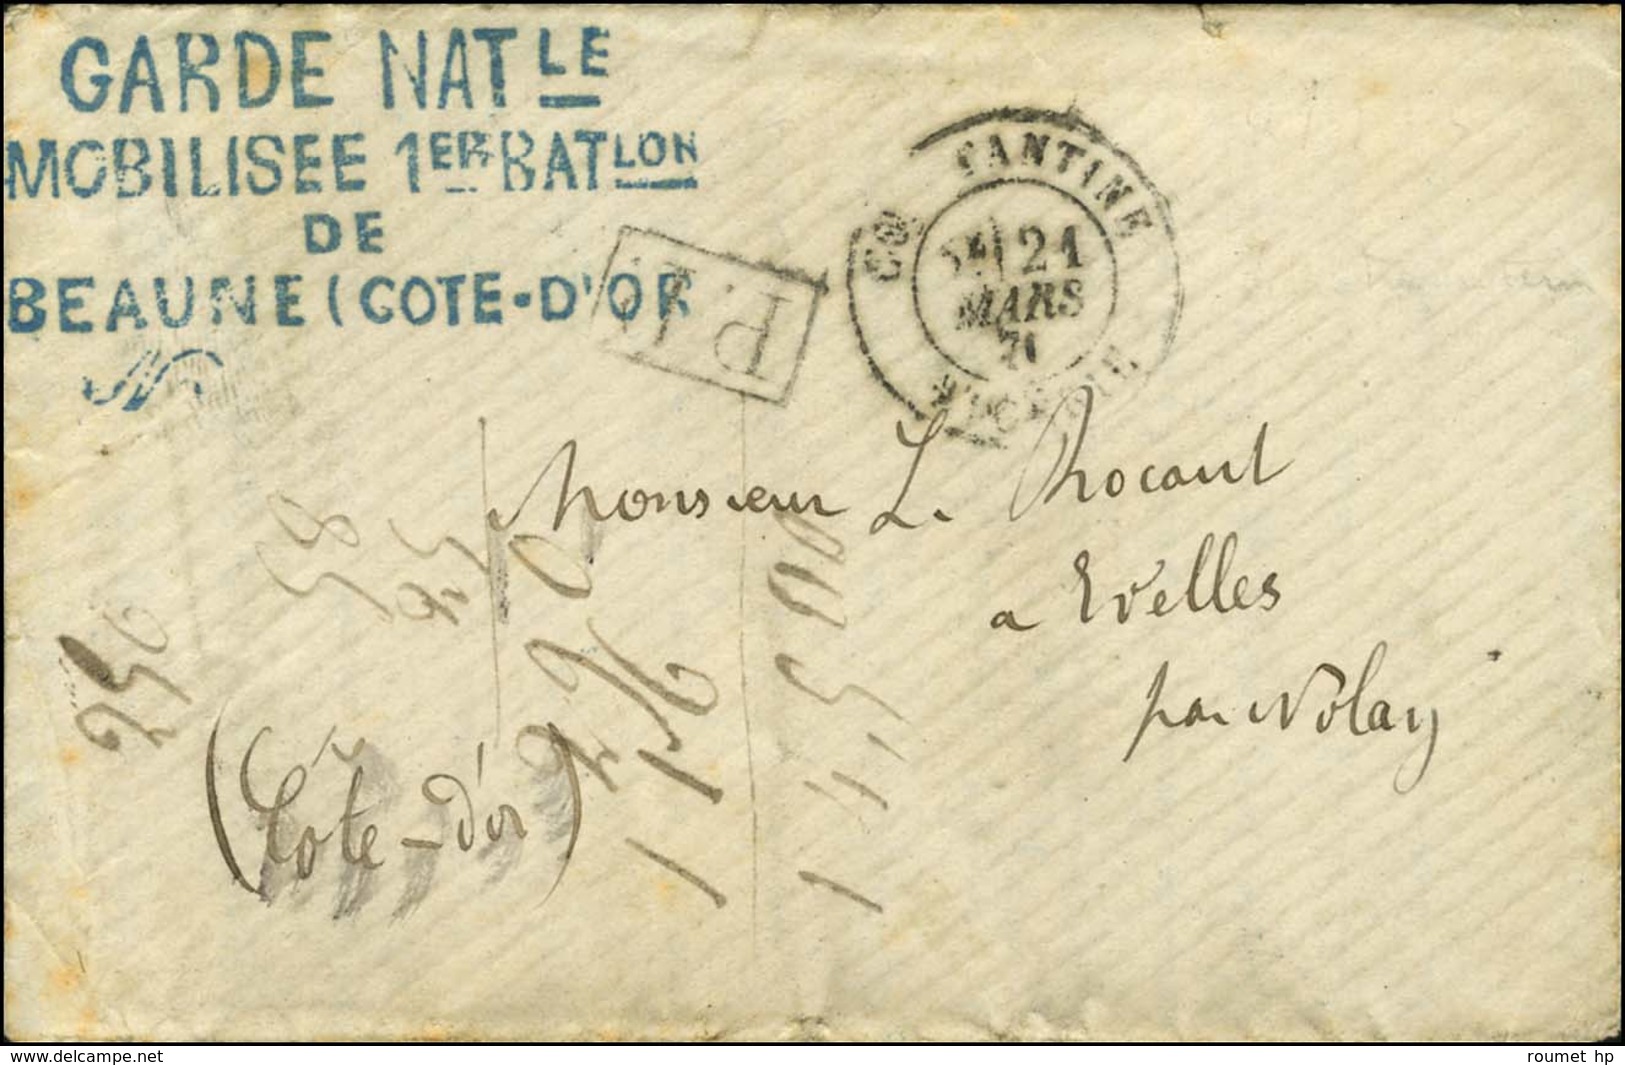 GARDE NATLE
MOBILISEE 1ER BATLON
DE
BEAUNE (COTE-D'OR
P.P.
TANTINE
21
MARS
71
Monsieur L. Rocaut
a Evelles
par Nolay
(Côte-d'or)
250
85
www.delcampe.net
roumet hp